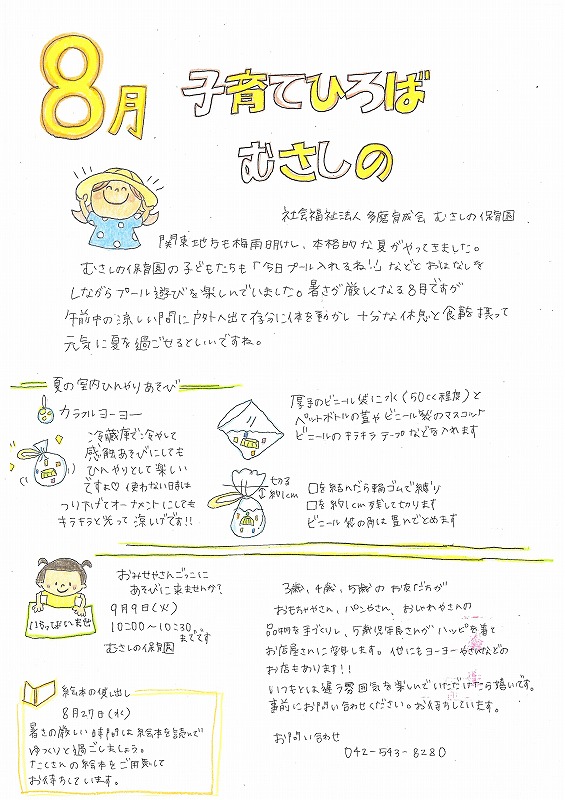 8月
子育てひろば
むさしの
社会福祉法人 多磨育成会 むさしの保育園
関東地方も梅雨明けし、本格的な夏がやってきました。
むさしの保育園の子どもたちも「今日プール入れるね!」などとおはなしを
しながらプール遊びを楽しんでいました。暑さが厳しくなる8月ですが
午前中の涼しい間に戸外へ出て存分に体を動かし 十分な休息と食事を摂って
元気に夏を過ごせるといいですね。
夏の室内ひんやりあそび
カラフルヨーヨー
冷蔵庫で冷やして
感触あそびにしても
ひんやりとして楽しい
ですよ♡ 使わない時は
つり下げてオーナメントにしても
キラキラと光って涼しげです!!
厚手のビニール袋に水(50cc程度)と
ペットボトルの蓋やビニール製のマスコット
ビニールのキラキラテープなどを入れます
切る
約1cm
口を結んだら輪ゴムで縛り
口を約1cm残して切ります
ビニール袋の角は畳んでとめます
いらっしゃいませ
おみせやさんごっこに
あそびに来ませんか?
9月9日(火)
10:00〜10:30
までです
むさしの保育園
3歳、4歳、5歳のお友だちが
おもちゃやさん、パンやさん、おしゃれやさんの
品物を手づくりし、5歳児年長さんがハッピを着て
お店屋さんに変身します。他にもヨーヨーやさんなどの
お店もあります!!
いつもとは違う雰囲気を楽しんでいただけたら嬉しいです。
事前にお問い合わせください。お待ちしています。
お問い合わせ
042-543-8280
絵本の貸し出し
8月27日(水)
暑さの厳しい時間は絵本を読んで
ゆっくりと過ごしましょう。
たくさんの絵本をご用意して
お待ちしています。